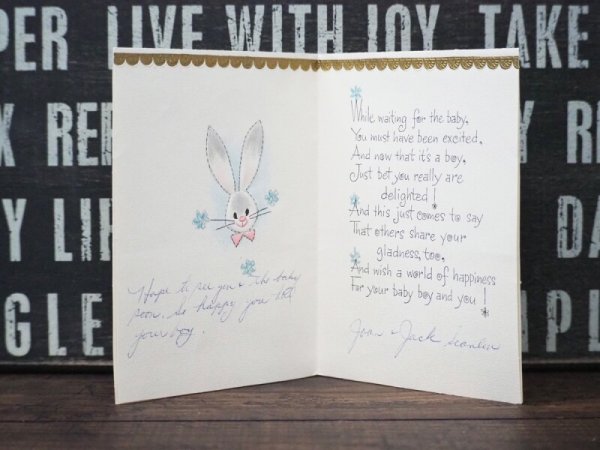 PER LIVE WITH JOY TAKE
X RE
Y R
Y LI
DA
GLE
PL
Hope to see you & the baby
soon. So happy you got
your boy.
While waiting for the baby,
You must have been excited,
And now that it's a boy,
Just bet you really are
delighted!
And this just comes to say
That others share your
gladness, too,
And wish a world of happiness
For your baby boy and you!
Joan & Jack